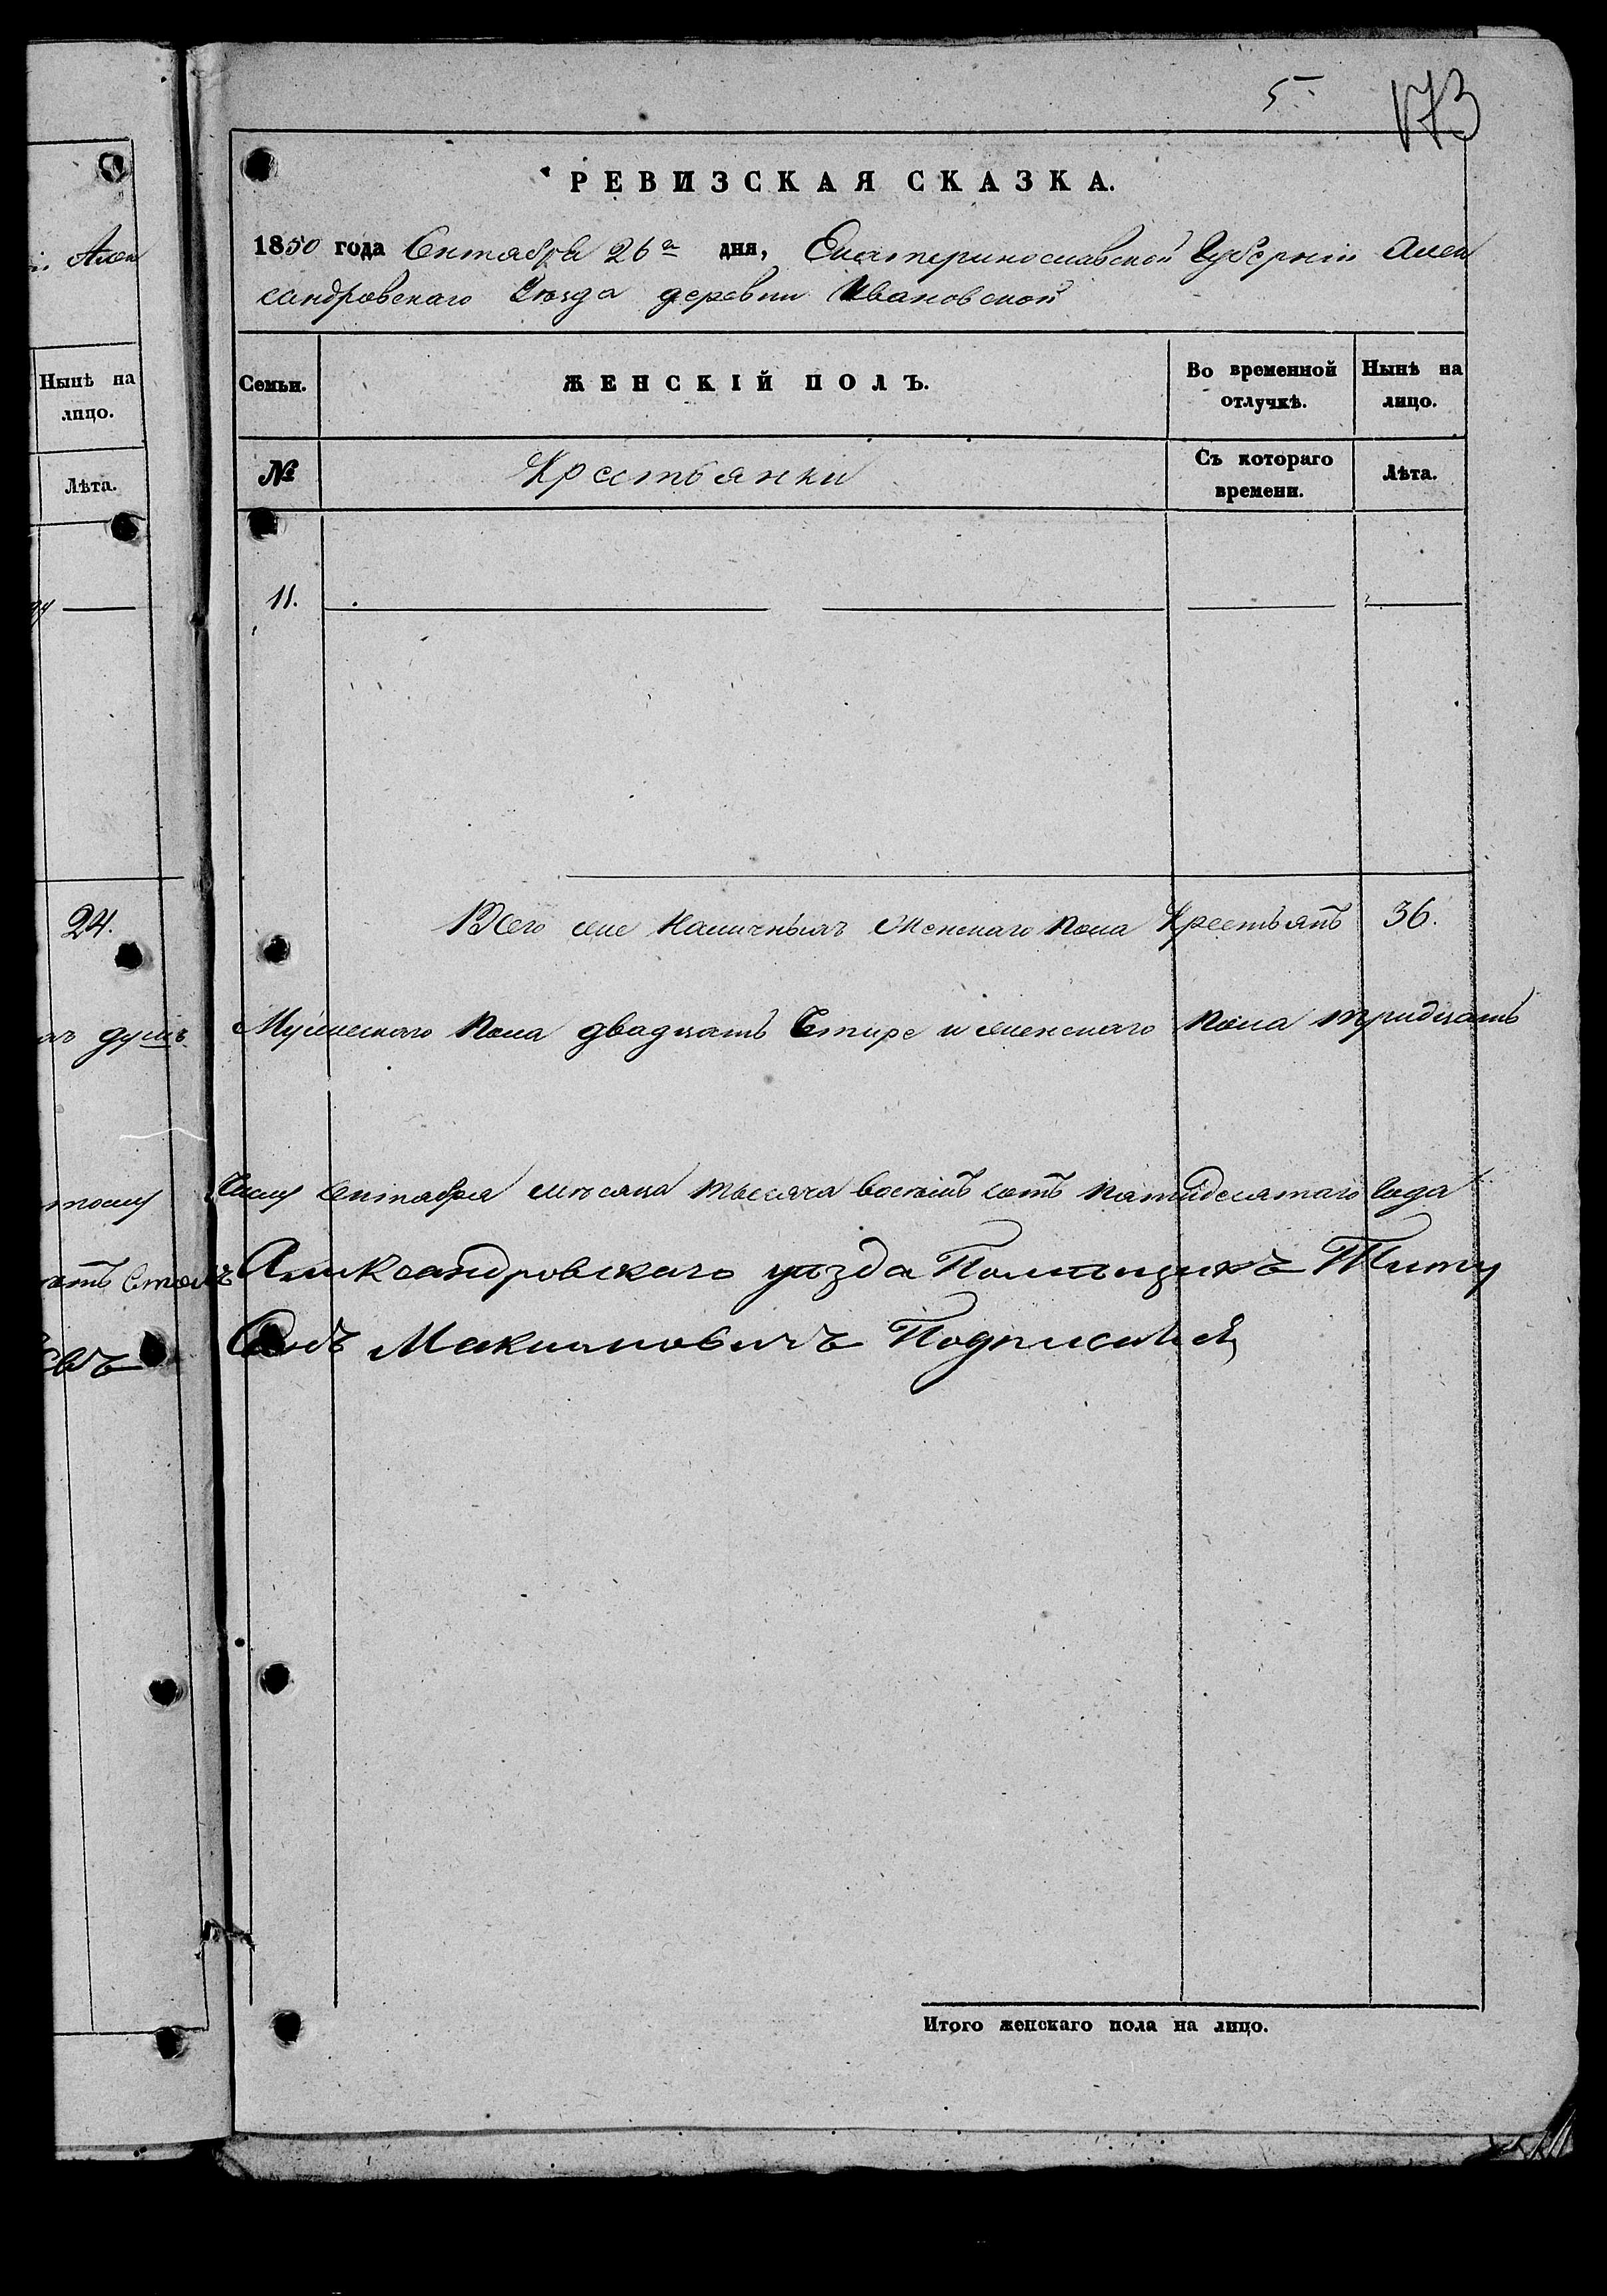 5. 173
РЕВИЗСКАЯ СКАЗКА.
1850 года Сентября 26го дня, Екатеринославской Губерніи Алек
сандровскаго Уѣзда деревни Ивановской
Семьи. ЖЕНСКІЙ ПОЛЪ. Во временной отлучкѣ. Нынѣ на лицо.
№ Крестьянки Съ котораго времени. Лѣта.
11.
Всего наличныхъ Женскаго пола Крестьянъ 36.
Мужескаго пола двадцать Четире и женскаго пола тридцать
Числу Сентября мѣсяца тысяча восемъ сотъ пятидесятаго Года
Александровскаго уѣзда Помѣщикъ Титу
Макимовичъ Подписался
Итого женскаго пола на лицо.
Алек
Нынѣ на
лицо.
Лѣта.
24.
душъ